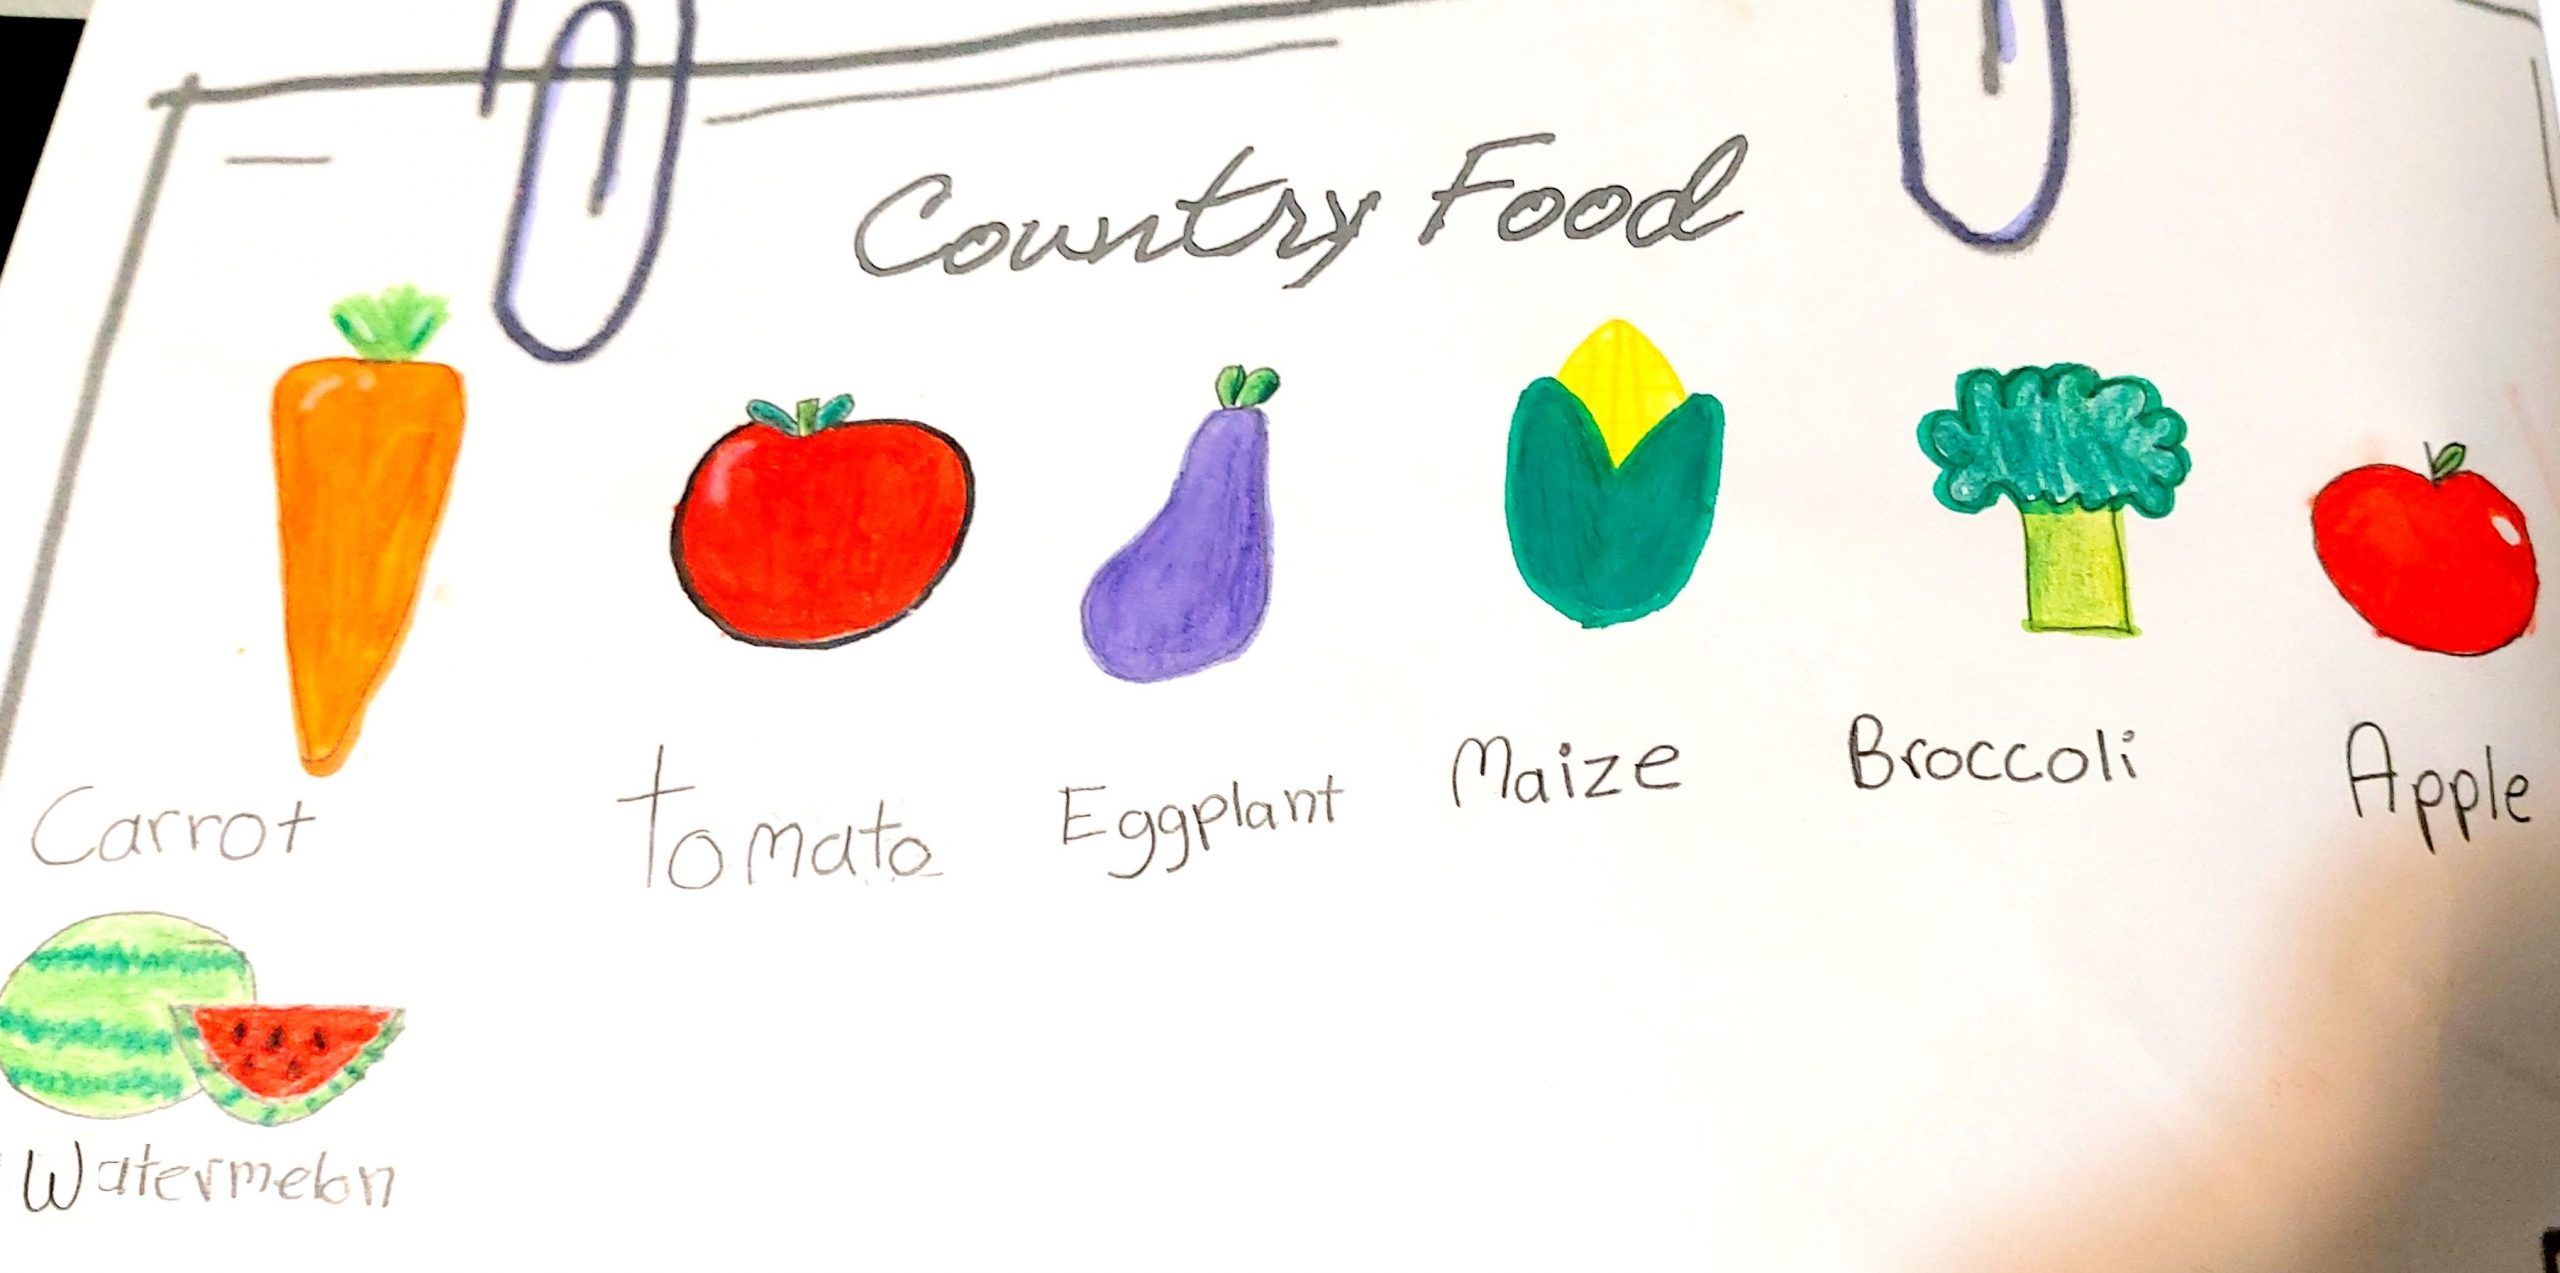 Country Food
Carrot
Tomato
Eggplant
Maize
Broccoli
Apple
Watermelon